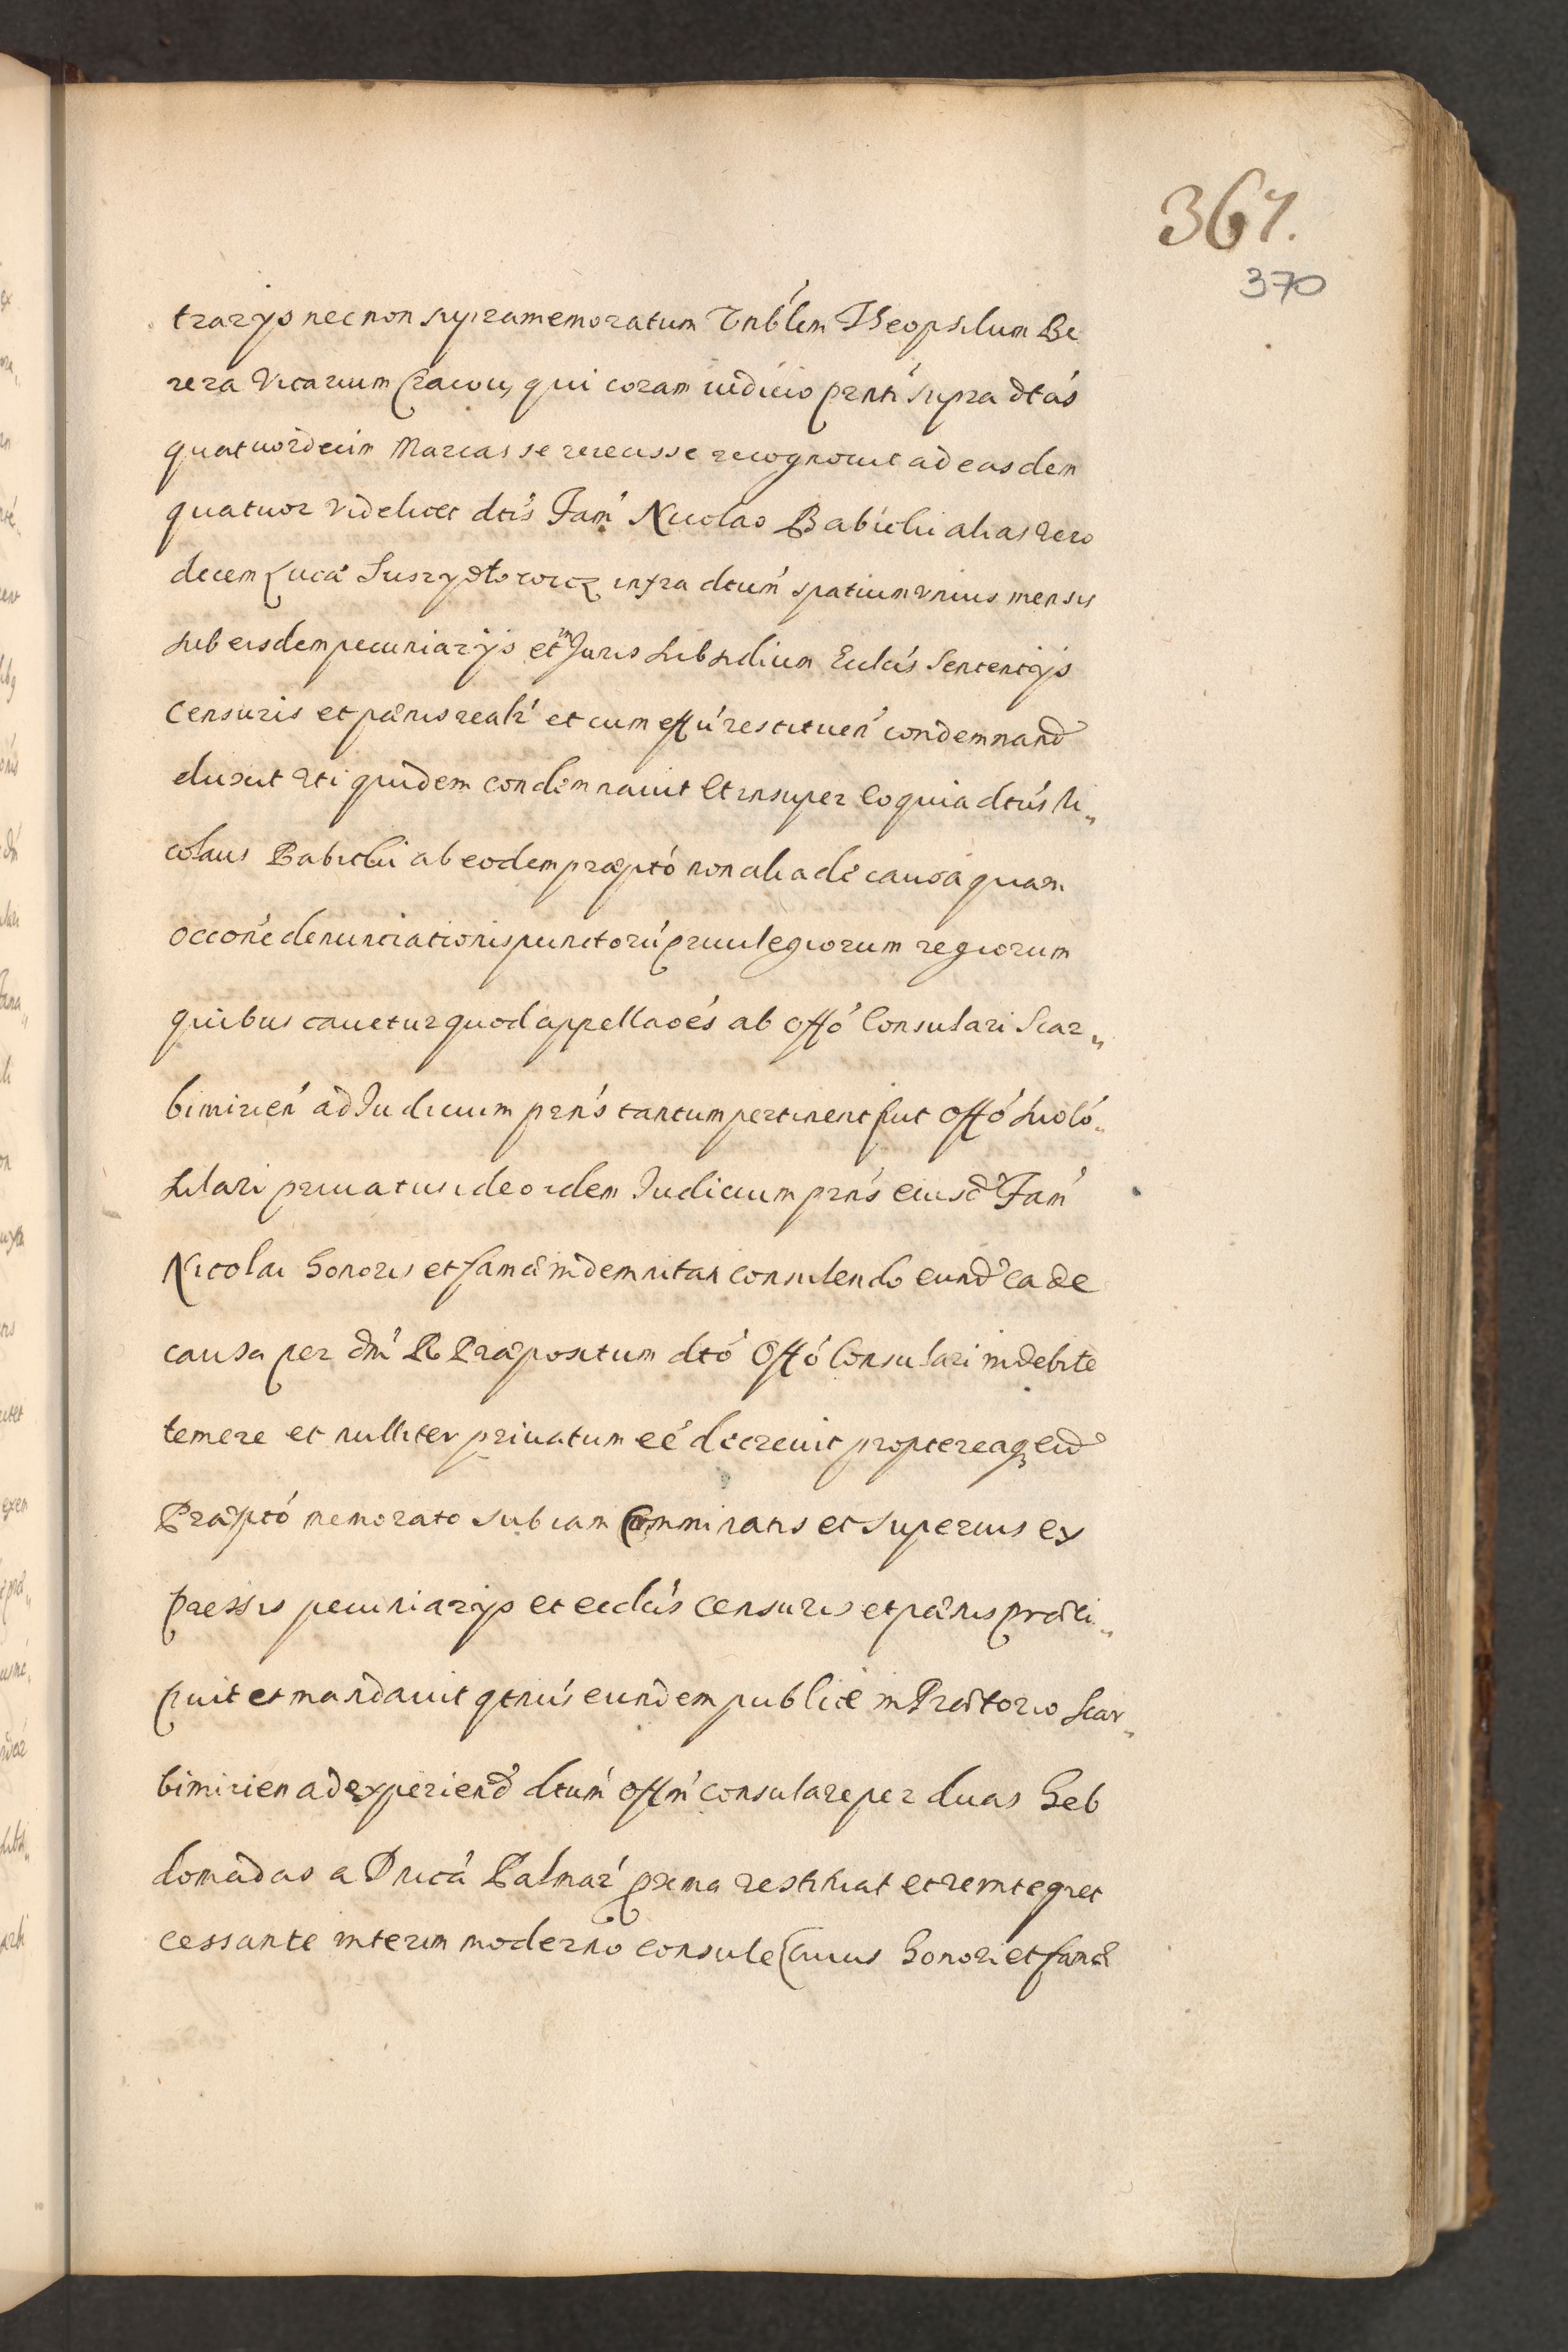 367.
370
trarys nec non supramemoratum Vnblem Theophilum Be
rera Vicarium Cracou, qui coram iudicio prnti supra dtas
quatuordecim Marcas se recensse recognouit ad eas dem
quatuor videlicet dtis Fam Nicolao Babichi alias vero
decem Lucæ infra dtum spatium vnius mensis
sub eisdem pecuniarys et in Juris subsidium Ecclis Sententys
Censuris et pænis realr et cum effu restituen condemnand
duxit uti quidem condemnauit Et insuper eo quia dtus Ni„
colaus Babichi ab eodem præpto non alia de causa quam
occone denunciationis punctoru priuilegiorum regiorum
quibus cauetur quod appellaoes ab Offo Consulari Scar„
bimirien ad Iudicium prns tantum pertinent fuit Offo
priuatus ideo idem Iudicium prns eiusd Fam
Nicolai honoris et famæ indemnitati consulendo eund ea de
causa per dm R Præpositum dto Offo Consulari indebite
temere et nulliter priuatum ee decreuit proptereaq eid
Præpto memorato sub iam Comminatis et superius ex
pressis pecuniarys et ecclis censuris et pænis præci„
puit et mandauit qtnus eundem publice in Prætorio Scar„
bimirien ad experiend dtum Offm consulare per duas heb
domadas a Dnica Palmar prima restituat et reintegret
cessante interim moderno consule cuius honori et famæ